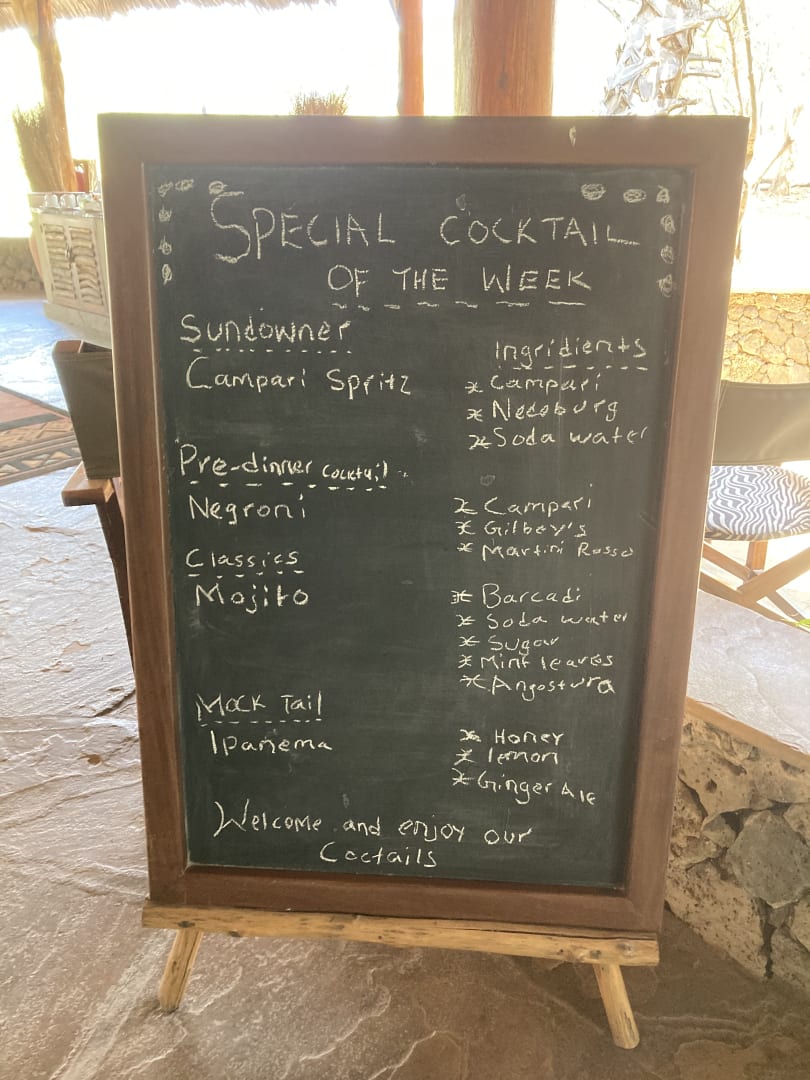 SPECIAL COCKTAIL
OF THE WEEK
Sundowner
Ingridients
Campari Spritz
* Campari
* Nedeburg
* Soda water
Pre-dinner cocktail
Negroni
* Campari
* Gilbey's
* Martini Rosso
Classics
Mojito
* Barcadi
* Soda water
* Sugar
* Mint leaves
* Angostura
Mock Tail
Ipanema
* Honey
* lemon
* Ginger Ale
Welcome and enjoy our
Coctails